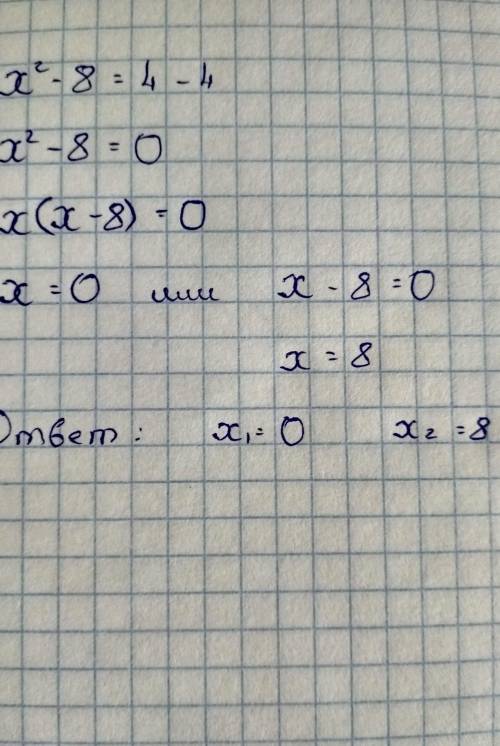 x² - 8 = 4 - 4
x² - 8 = 0
x(x - 8) = 0
x = 0 или x - 8 = 0
x = 8
Ответ: x₁ = 0 x₂ = 8